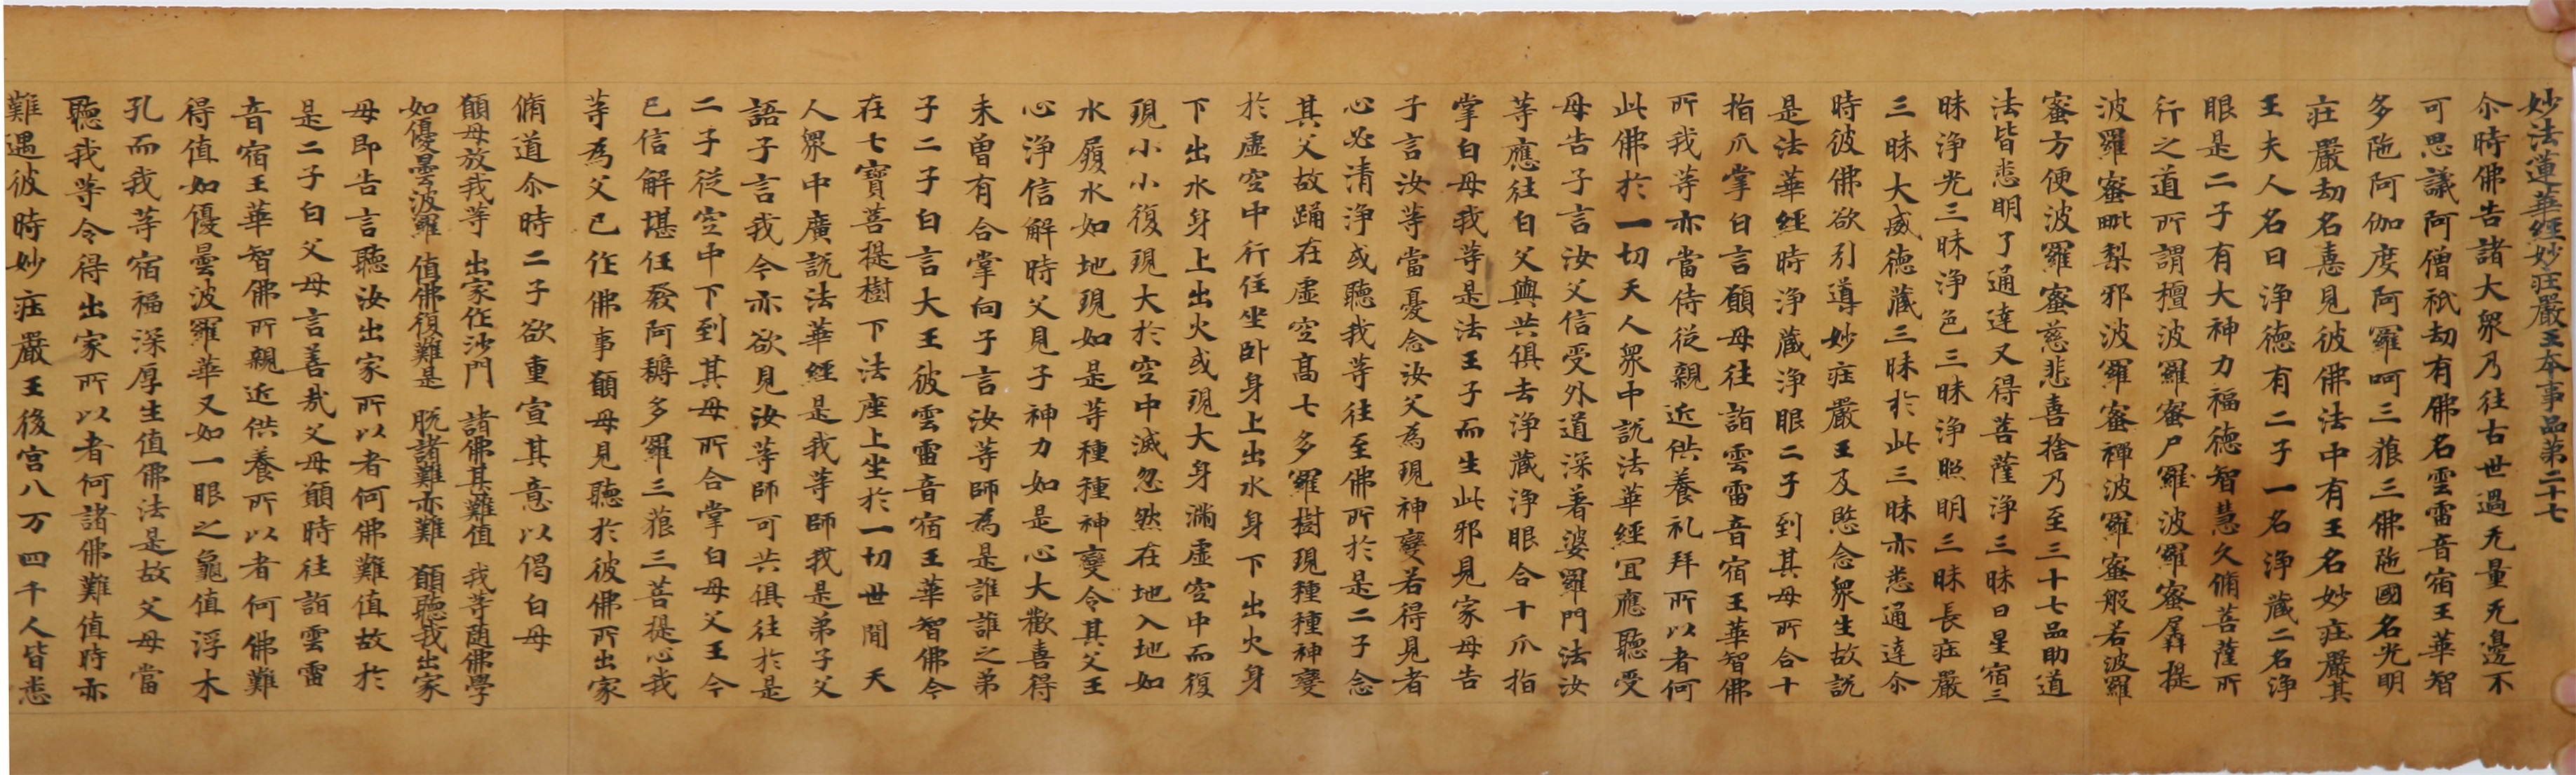 妙法蓮華經妙莊嚴王本事品第二十七
尒時佛告諸大衆乃往古世過无量无邊不
可思議阿僧祇劫有佛名雲雷音宿王華智
多陁阿伽度阿羅呵三藐三佛陁國名光明
莊嚴劫名憙見彼佛法中有王名妙莊嚴其
王夫人名曰浄徳有二子一名浄藏二名浄
眼是二子有大神力福徳智慧久脩菩薩所
行之道所謂檀波羅蜜尸羅波羅蜜羼提
波羅蜜毗梨邪波羅蜜禪波羅蜜般若波羅
蜜方便波羅蜜慈悲喜捨乃至三十七品助道
法皆悉明了通達又得菩薩浄三昧日星宿三
昧浄光三昧浄色三昧浄照明三昧長莊嚴
三昧大威徳藏三昧於此三昧亦悉通達尒
時彼佛欲引導妙莊嚴王及愍念衆生故說
是法華經時浄藏浄眼二子到其母所合十
指爪掌白言願母往詣雲雷音宿王華智佛
所我等亦當侍從親近供養礼拜所以者何
此佛於一切天人衆中說法華經冝應聽受
母告子言汝父信受外道深著婆羅門法汝
等應往白父與共俱去浄藏浄眼合十爪指
掌白母我等是法王子而生此邪見家母告
子言汝等當憂念汝父為現神變若得見者
心必清浄或聽我等往至佛所於是二子念
其父故踊在虛空高七多羅樹現種種神變
於虛空中行住坐卧身上出水身下出火身
下出水身上出火或現大身滿虛空中而復
現小小復現大於空中滅忽然在地入地如
水履水如地現如是等種種神變令其父王
心浄信解時父見子神力如是心大歡喜得
未曾有合掌向子言汝等師為是誰誰之弟
子二子白言大王彼雲雷音宿王華智佛今
在七寶菩提樹下法座上坐於一切世間天
人衆中廣說法華經是我等師我是弟子父
語子言我今亦欲見汝等師可共俱往於是
二子從空中下到其母所合掌白母父王今
已信解堪任發阿耨多羅三藐三菩提心我
等為父已作佛事願母見聽於彼佛所出家
脩道尒時二子欲重宣其意以偈白母
願母放我等 出家作沙門 諸佛甚難值 我等随佛學
如優曇波羅 值佛復難是 脫諸難亦難 願聽我出家
母即告言聽汝出家所以者何佛難值故於
是二子白父母言善哉父母願時往詣雲雷
音宿王華智佛所親近供養所以者何佛難
得值如優曇波羅華又如一眼之龜值浮木
孔而我等宿福深厚生值佛法是故父母當
聽我等令得出家所以者何諸佛難值時亦
難遇彼時妙莊嚴王後宮八万四千人皆悉